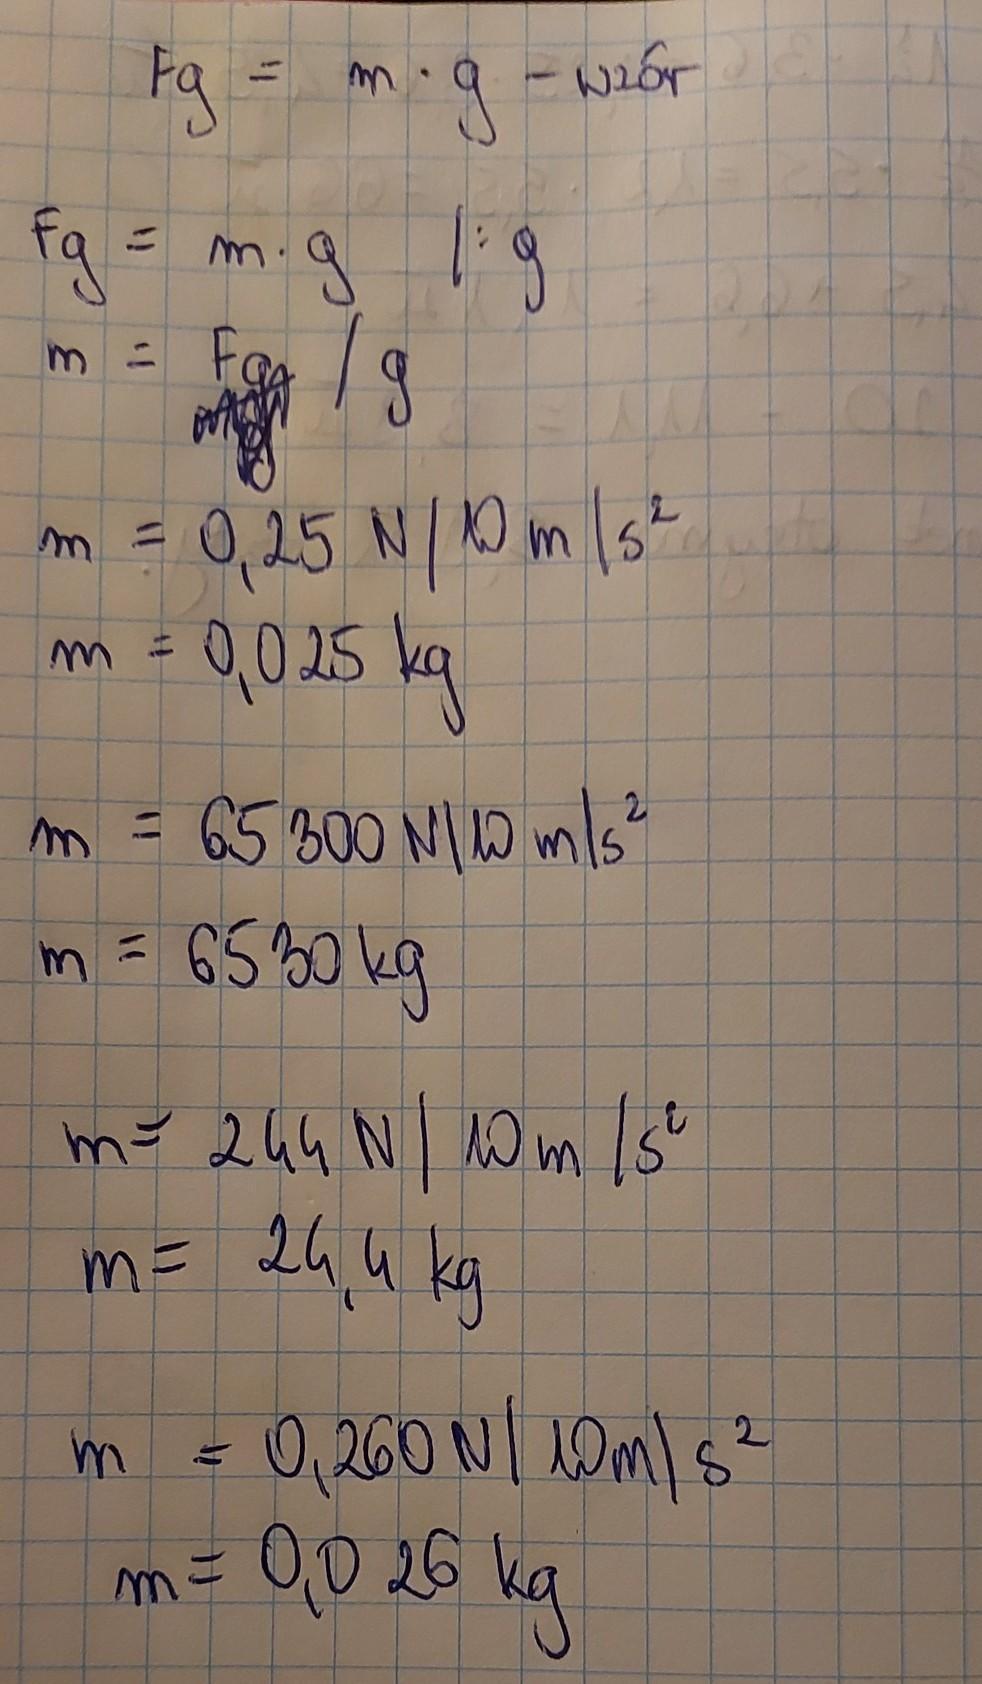 Fg = m · g - wzór
Fg = m · g /: g
m = Fg / g
m = 0,25 N/10 m/s²
m = 0,025 kg
m = 65300 N/10 m/s²
m = 6530 kg
m = 244 N/10 m/s²
m = 24,4 kg
m = 0,260 N/10 m/s²
m = 0,026 kg